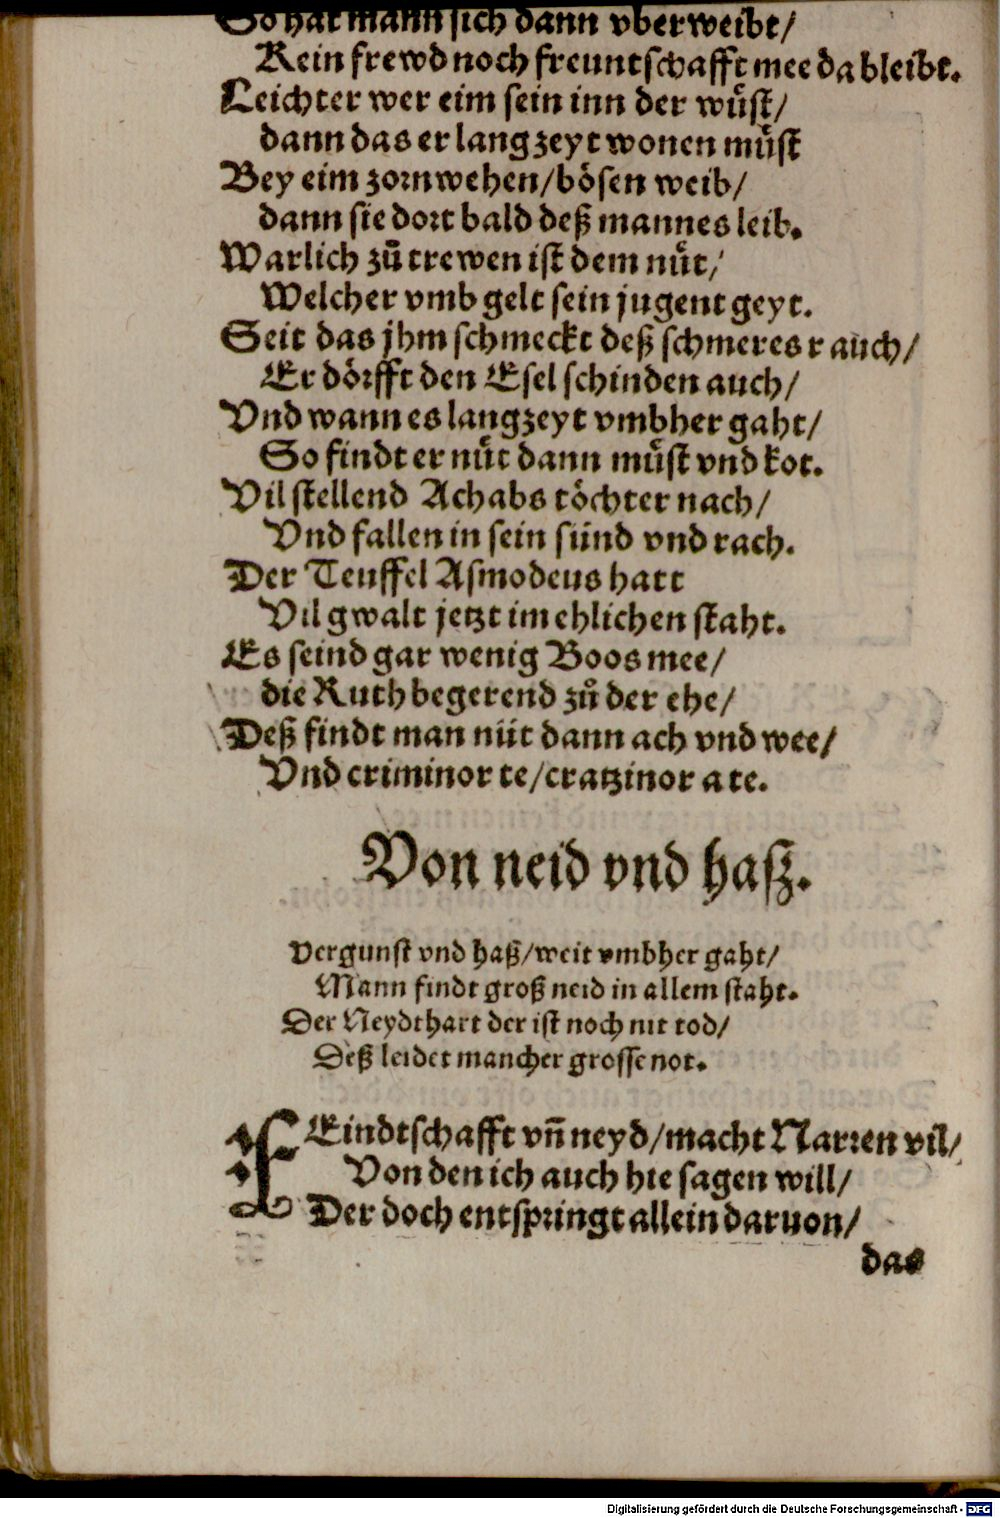 So hat mann sich dann vberweibt/
Kein frewd noch freuntschafft mee da bleibt.
Leichter wer eim sein inn der wuͤst/
dann das er lang zeyt wonen muͤst
Bey eim zornwehen/boͤsen weib/
dann sie dort bald deß mannes leib.
Warlich zuͦ trewen ist dem nuͤt/
Welcher vmb gelt sein jugent geyt.
Seit das jhm schmeckt deß schmeres rauch/
Er doͤrfft den Esel schinden auch/
Vnd wann es lang zeyt vmbher gaht/
So findt er nuͤt dann muͤst vnd kot.
Vil stellend Achabs toͤchter nach/
Vnd fallen in sein sünd vnd rach.
Der Teuffel Asmodeus hatt
Vil gwalt jetzt im ehlichen staht.
Es seind gar wenig Boos mee/
die Ruth begerend zuͦ der ehe/
Deß findt man nüt dann ach vnd wee/
Vnd criminor te/cratzinor a te.
Von neid vnd hasz.
Vergunst vnd haß/weit vmbher gaht/
Mann findt groß neid in allem staht.
Der Neydthart der ist noch nit tod/
Deß leidet mancher grosse not.
FEindtschafft vñ neyd/macht Narren vil/
Von den ich auch hie sagen will/
Der doch entspringt allein daruon/
das
Digitalisierung gefördert durch die Deutsche Forschungsgemeinschaft - DFG